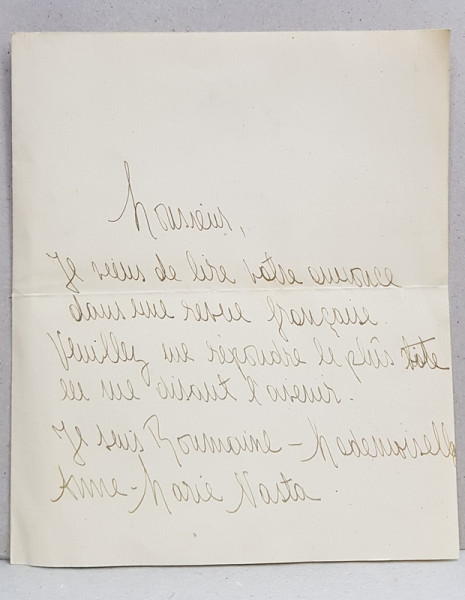 Monsieur,
Je viens de lire votre annonce
dans une revue française.
Veuillez me répondre le plus vite
en me disant l'avenir.
Je suis Roumaine – Mademoiselle
Anne-Marie Nasta